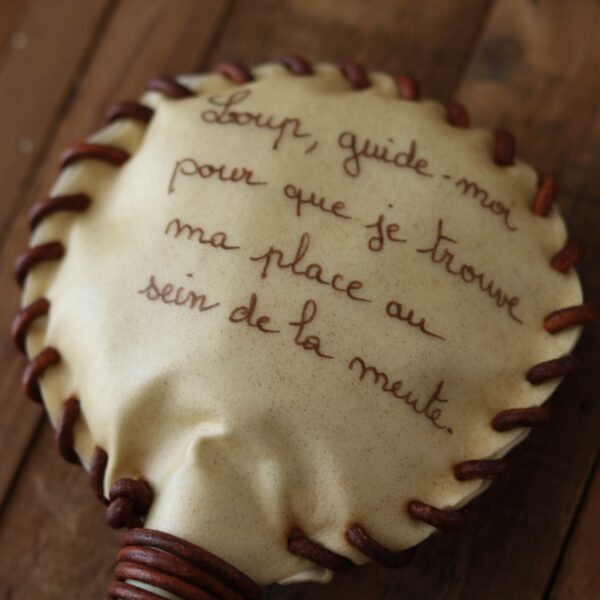 Loup, guide-moi
pour que je trouve
ma place au
sein de la meute.